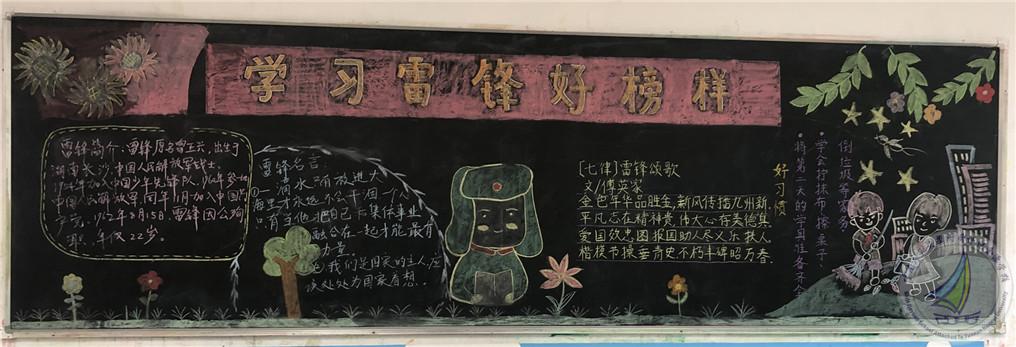 学习雷锋好榜样
雷锋简介:雷锋原名雷正兴,出生于
湖南长沙,中国人民解放军战士。
1954年加入中国少年先锋队,1960年参加
中国人民解放军,同年11月加入中国共
产党。1962年8月15日,雷锋因公殉
职,年仅22岁。
雷锋名言:
①一滴水只有放进大
海里才永远不会干涸,一个人
只有当他把自己和集体事业
融合在一起才能最有
力量。
②我们是国家的主人,应
该处处为国家着想。
[七律]雷锋颂歌
文/傅英家
金色年华品胜金,新风传播九州新。
平凡志在精神贵,伟大心存美德真。
爱国效忠图报国,助人尽义乐扶人。
楷模节操垂青史,不朽丰碑昭万春。
好习惯